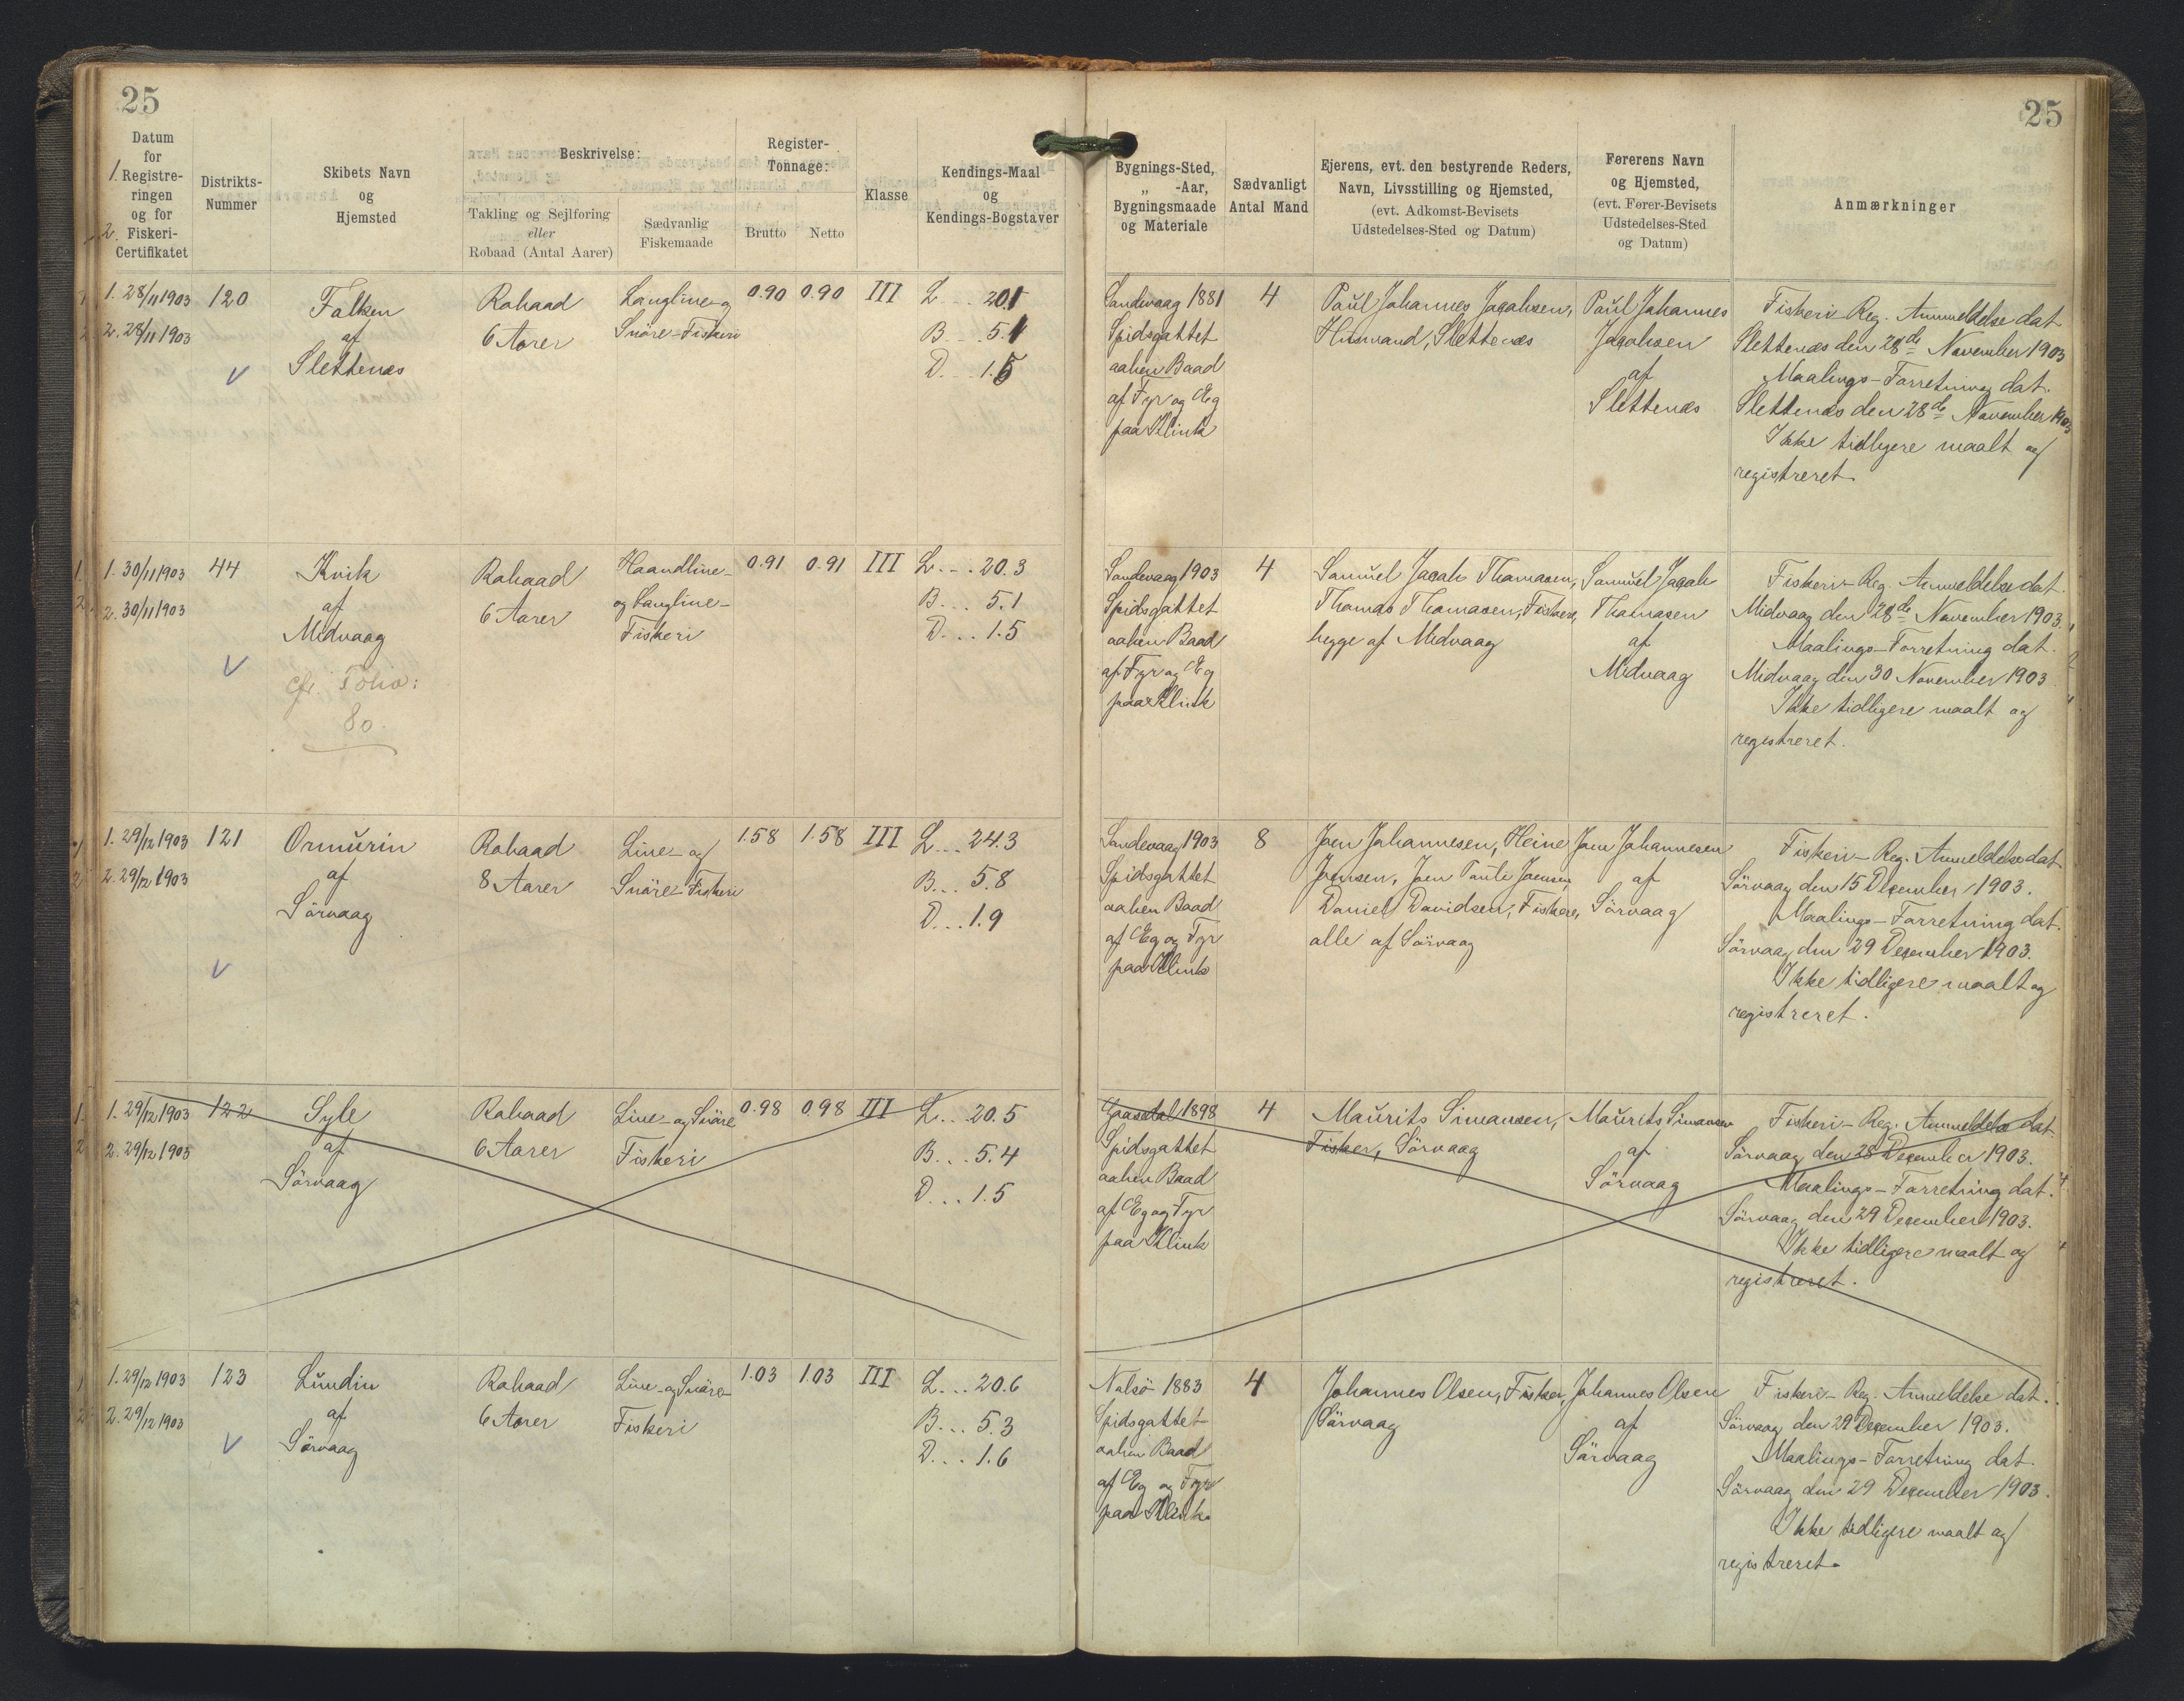 25
25
Datum
for
1. Registre-
ringen
og for
2. Fiskeri-
Certifikatet
Distrikts-
Nummer
Skibets Navn
og
Hjemsted
Beskrivelse:
Takling og Sejlføring
eller
Robaad (Antal Aarer)
Sædvanlig
Fiskemaade
Register-
Tonnage:
Brutto
Netto
Klasse
Kendings-Maal
og
Kendings-Bogstaver
Bygnings-Sted,
„ -Aar,
Bygningsmaade
og Materiale
Sædvanligt
Antal Mand
Ejerens, evt. den bestyrende Reders,
Navn, Livsstilling og Hjemsted,
(evt. Adkomst-Bevisets
Udstedelses-Sted og Datum)
Førerens Navn
og Hjemsted,
(evt. Fører-Bevisets
Udstedelses-Sted
og Datum)
Anmærkninger
1. 28/11 1903
2. 28/11 1903
120
Falken
af
Slettenæs
Robaad
6 Aarer
Langline og
Snöre-Fiskeri
0.90
0.90
III
L... 20.1
B... 5.1
D... 1.5
Sandevaag 1881
Spidsgattet
aaben Baad
af Fyr og Eg
paa Klink
4
Paul Johannes Jacobsen,
Husmand, Slettenæs
Paul Johannes
Jacobsen
af
Slettenæs
Fiskeri-Reg. Anmeldelse dat
Slettenæs den 28de November 1903
Maalings-Forretning dat.
Slettenæs den 28de November 1903
Ikke tidligere maalt og
registreret.
1. 30/11 1903
2. 30/11 1903
44
Kvik
af
Midvaag
cfr. Folio:
80.
Robaad
6 Aarer
Haandline-
og Langline-
Fiskeri
0.91
0.91
III
L... 20.3
B... 5.1
D... 1.5
Sandevaag 1903
Spidsgattet
aaben Baad
af Fyr og Eg
paa Klink
4
Samuel Jacob Thomasen,
Thomas Thomasen, Fiskere,
begge af Midvaag
Samuel Jacob
Thomasen
af
Midvaag
Fiskeri-Reg. Anmeldelse dat.
Midvaag den 28de November 1903.
Maalings-Forretning dat.
Midvaag den 30 November 1903
Ikke tidligere maalt og
registreret.
1. 29/12 1903
2. 29/12 1903
121
Ormurin
af
Sörvaag
Robaad
8 Aarer
Line- og
Snöre-Fiskeri
1.58
1.58
III
L... 24.3
B... 5.8
D... 1.9
Sandevaag 1903
Spidsgattet
aaben Baad
af Eg og Fyr
paa Klink
8
Joen Johannesen, Heine
Joensen, Joen Pauli Joensen,
Daniel Davidsen, Fiskere,
alle af Sörvaag
Joen Johannesen
af
Sörvaag
Fiskeri-Reg. Anmeldelse dat
Sörvaag den 15 December 1903.
Maalings-Forretning dat.
Sörvaag den 29 December 1903.
Ikke tidligere maalt og
registreret.
1. 29/12 1903
2. 29/12 1903
122
Syle
af
Sörvaag
Robaad
6 Aarer
Line- og Snöre
Fiskeri
0.98
0.98
III
L... 20.5
B... 5.4
D... 1.5
Gaasedal 1898
Spidsgattet
aaben Baad
af Eg og Fyr
paa Klink
4
Maurits Simonsen,
Fisker, Sörvaag
Maurits Simonsen
af
Sörvaag
Fiskeri-Reg. Anmeldelse dat
Sörvaag den 28 December 1903.
Maalings-Forretning dat.
Sörvaag den 29 December 1903.
Ikke tidligere maalt og
registreret.
1. 29/12 1903
2. 29/12 1903
123
Lundin
af
Sörvaag
Robaad
6 Aarer
Line- og Snöre-
Fiskeri
1.03
1.03
III
L... 20.6
B... 5.3
D... 1.6
Nolsö 1883
Spidsgattet
aaben Baad
af Eg og Fyr
paa Klink
4
Johannes Olsen, Fisker,
Sörvaag
Johannes Olsen
af
Sörvaag
Fiskeri-Reg. Anmeldelse dat.
Sörvaag den 29 December 1903.
Maalings-Forretning dat.
Sörvaag den 29 December 1903.
Ikke tidligere maalt og
registreret.